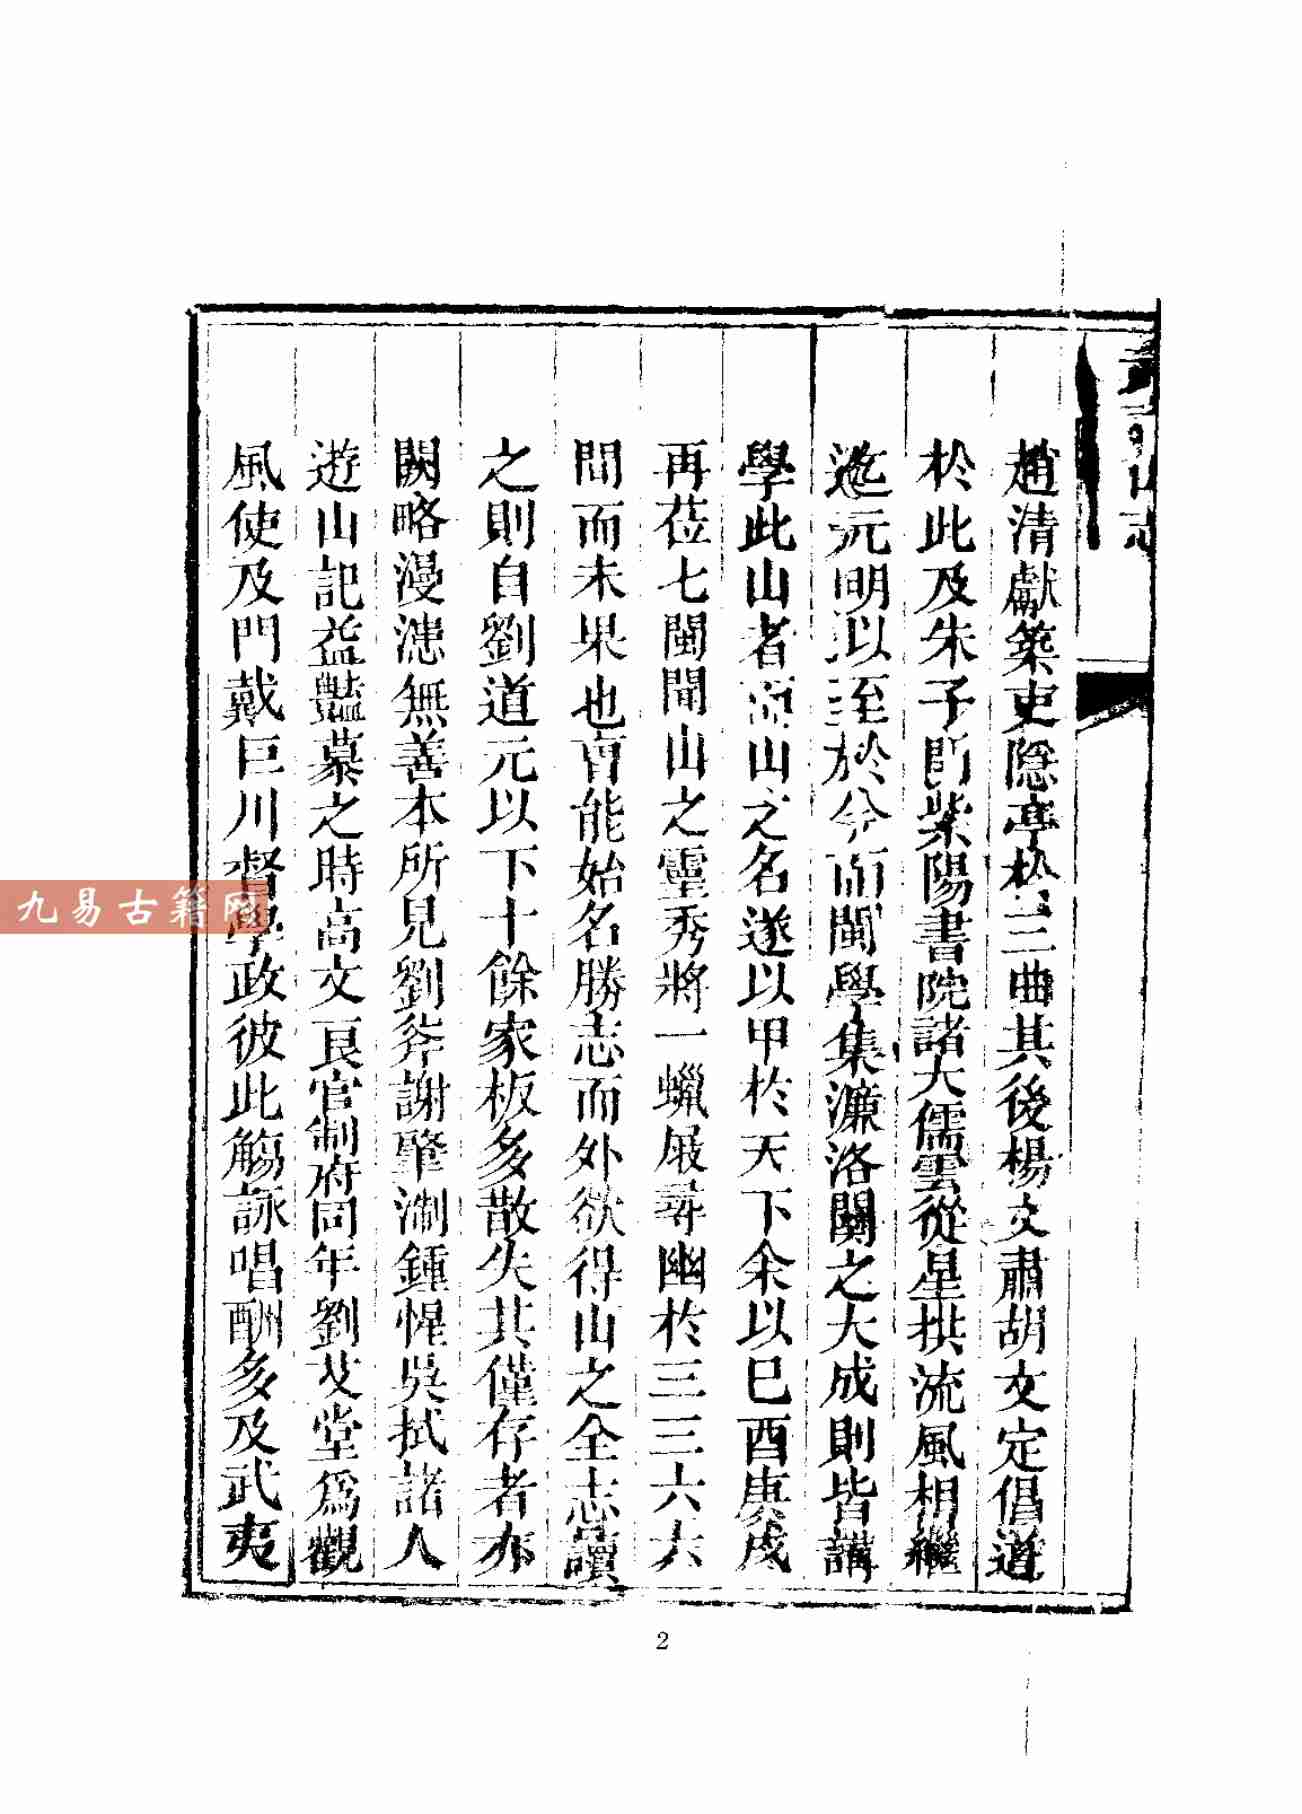 趙清獻築吏隱亭於三曲其後楊文肅胡文定倡道
於此及朱子即紫陽書院諸大儒雲從星拱流風相繼
迨元明以至於今而閩學集濂洛關之大成則皆講
學此山者而山之名遂以甲於天下余以己酉庚戌
再莅七閩聞山之靈秀將一蠟屐尋幽於三三六六
間而未果也曹能始名勝志而外欲得山之全志讀
之則自劉道元以下十餘家板多散失其僅存者亦
闕略漫漶無善本所見劉斧謝肇淛鍾惺吳拭諸人
遊山記益豔慕之時高文良官制府同年劉艾堂為觀
風使及門戴巨川督學政彼此觴詠唱酬多及武夷
山志
九易古籍网
2